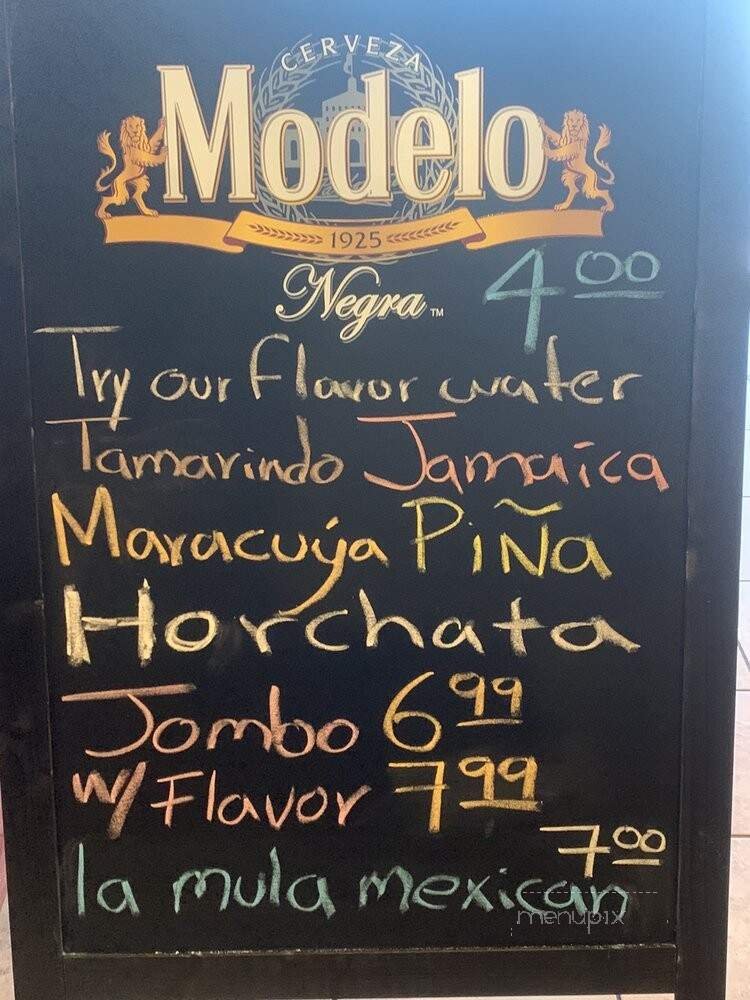 CERVEZA
Modelo
1925
Negra™
4.00
Try our flavor water
Tamarindo Jamaica
Maracuýa PiÑa
Horchata
Jombo 6.99
W/ Flavor 7.99
7.00
la mula mexican
menupix